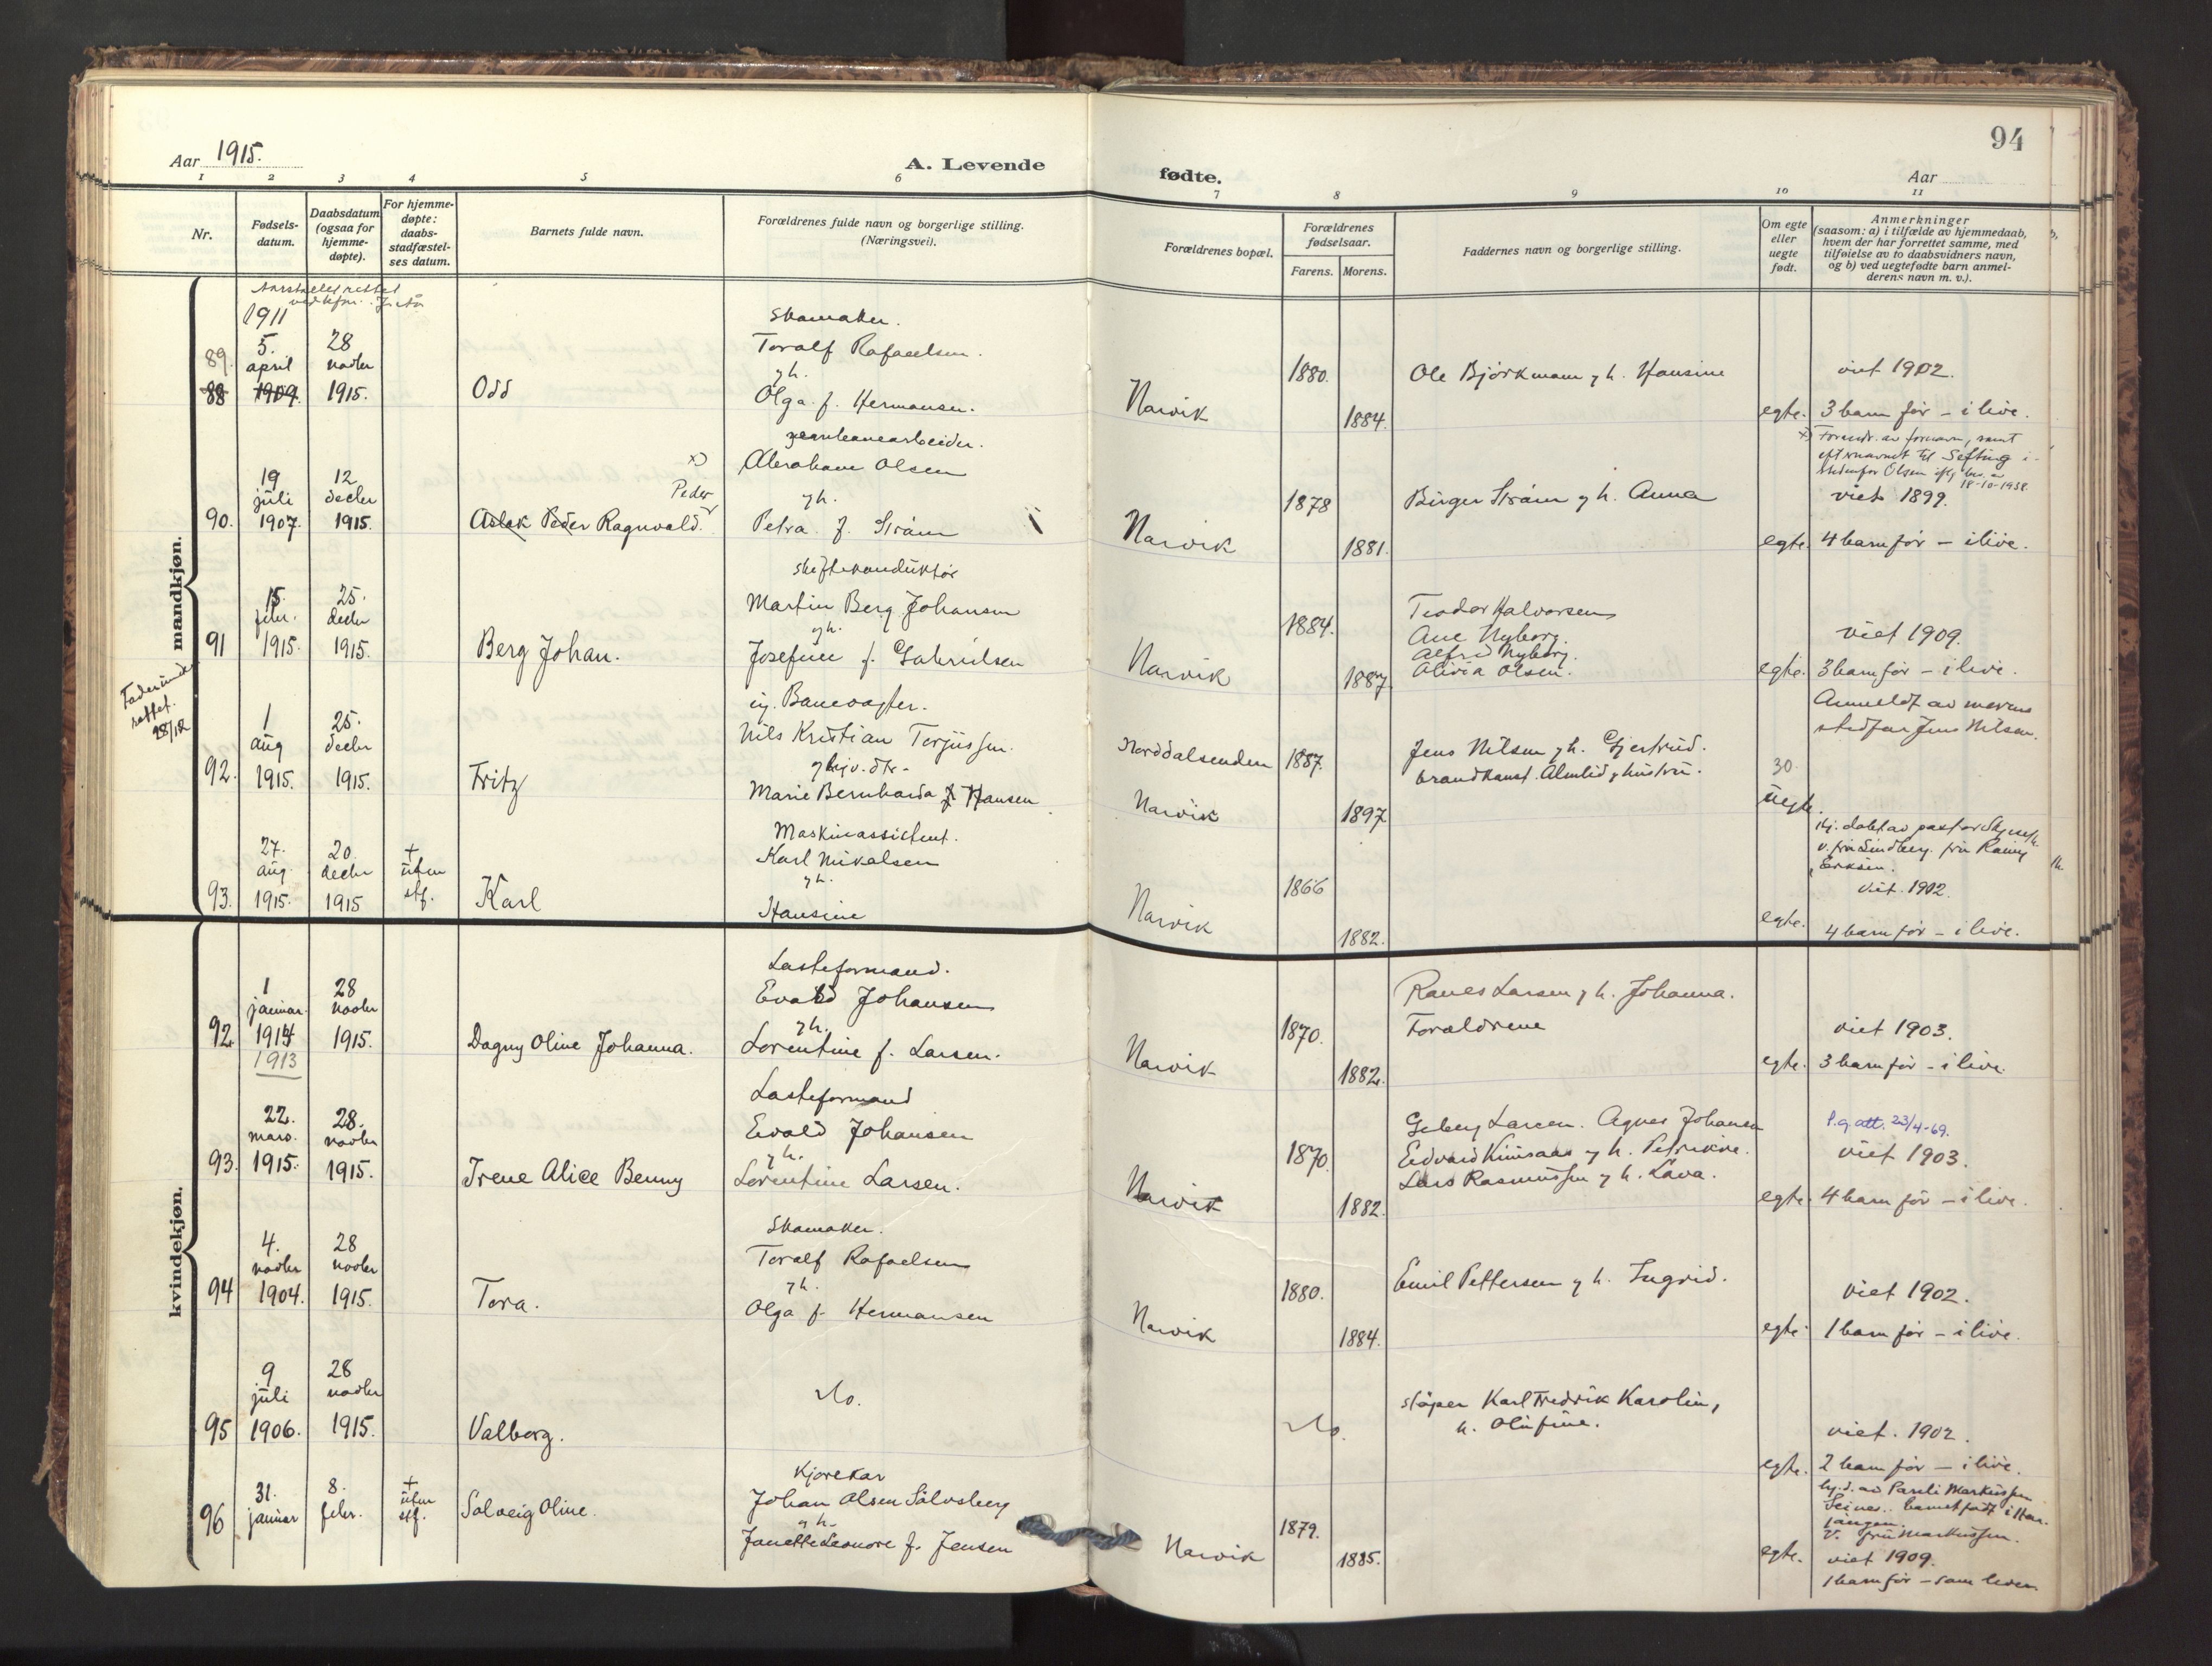 Aar 1915.
A. Levende
fødte.
94
Aar
1 2 3 4 5 6 7 8 9 10 11
Nr.
Fødsels-
datum.
Daabsdatum
(ogsaa for
hjemme-
døpte).
For hjemme-
døpte:
daabs-
stadfæstel-
ses datum.
Barnets fulde navn.
Forældrenes fulde navn og borgerlige stilling.
(Næringsvei).
Forældrenes bopæl.
Forældrenes
fødselsaar.
Farens. Morens.
Faddernes navn og borgerlige stilling.
Om egte
eller
uegte
født.
Anmerkninger
(saasom: a) i tilfælde av hjemmedaab,
hvem der har forrettet samme, med
tilføielse av to daabsvidners navn,
og b) ved uegtefødte barn anmel-
derens navn m. v.).
mandkjøn.
Aarstallet rettet
1911
89.
88
5.
april
1909
28
novbr
1915.
Odd
Skomaker.
Toralf Rafaelsen.
g h.
Olga f. Hermansen.
Narvik
1880.
1884.
Ole Björkmann g h. Hansine
egte.
viet 1902.
3 barn før – i live.
90.
19
juli
1907.
12
decbr
1915.
x)
Peder
Aslak Peder Ragnvald.
jernbanearbeider.
Abraham Olsen
g h.
Petra f. Strøm
Narvik
1878
1881.
Birger Strøm g h. Anna
egte.
x) Forandr. av fornavn, samt
efternavnet til Sefting i-
stedenfor Olsen iflg bev. av
18-10-1938.
viet 1899.
4 barn før – i live.
91
15.
febr.
1915.
25.
decbr
1915.
Berg Johan.
skiftekonduktør
Martin Berg Johansen
g h.
Josefine f. Gabrielsen
Narvik
1884.
1887.
Teodor Halvorsen
Ane Nyborg.
Alfred Nyborg.
Alivia Olsen.
egte.
viet 1909.
3 barn før – i live.
28/12
92.
1
aug
1915.
25.
decbr
1915.
Fritz
Banevogter.
Nils Kristian Torjussen.
Marie Bernharda f. Hansen
Norddalsenden
Narvik
1887.
1897
Jens Nilsen g h. Gjertrud.
brandkonst. Almlid g hustru.
30.
uegte.
Anmeldt av morens
stedfar Jens Nilsen.
93.
27.
aug.
1915.
20.
decbr
1915
+
uten
stf.
Karl
Maskinassistent.
Karl Mikalsen
g h.
Hansine
Narvik
1866
1882.
egte.
v. fru Lindberg. fru Ramy
Eriksen.
viet. 1902.
4 barn før – i live.
kvindekjøn.
92.
1
januar.
1914
1913
28
novbr
1915.
Dagny Oline Johanna.
Lasteformand.
Evald Johansen
g h.
Lorentine f. Larsen.
Narvik
1870.
1882.
Ranes Larsen g h. Johanna.
Forældrene
egte.
viet 1903.
3 barn før – i live.
93.
22.
mars.
1915.
28.
novbr
1915.
Irene Alice Benny
Lasteformand
Evald Johansen
g h.
Lorentine Larsen.
Narvik
1870.
1882.
Larsen. Agnes Johansen
Edvard g h. Petrikke.
Lars Rasmussen g h. Lava.
egte.
l.g att. 23/4-69.
viet 1903.
4 barn før – i live.
94
4.
novbr
1904.
28
novbr
1915.
Tora.
Skomaker.
Toralf Rafaelsen
g h.
Olga f. Hermansen
Narvik
1880.
1884.
Emil Pettersen g h. Ingrid.
egte.
viet 1902.
1 barn før – i live.
95
9
juli
1906.
28
novbr
1915.
Valborg.
do.
do.
sløper Karl Fredrik Karolin,
h. Olufine.
egte.
viet. 1902.
2 barn før – i live.
96
31.
januar
8.
febr.
+
uten
stf.
Solveig Oline.
Kjørekar
Johan Olsen Sølvsberg
g h.
Janette Leonore f. Jensen
Narvik
1879.
1885.
egte.
hj.d. av Pauli Markussen
Seines. barnet født i Her-
jangen.
v. fru Markussen.
viet 1909.
1 barn før – som lever.